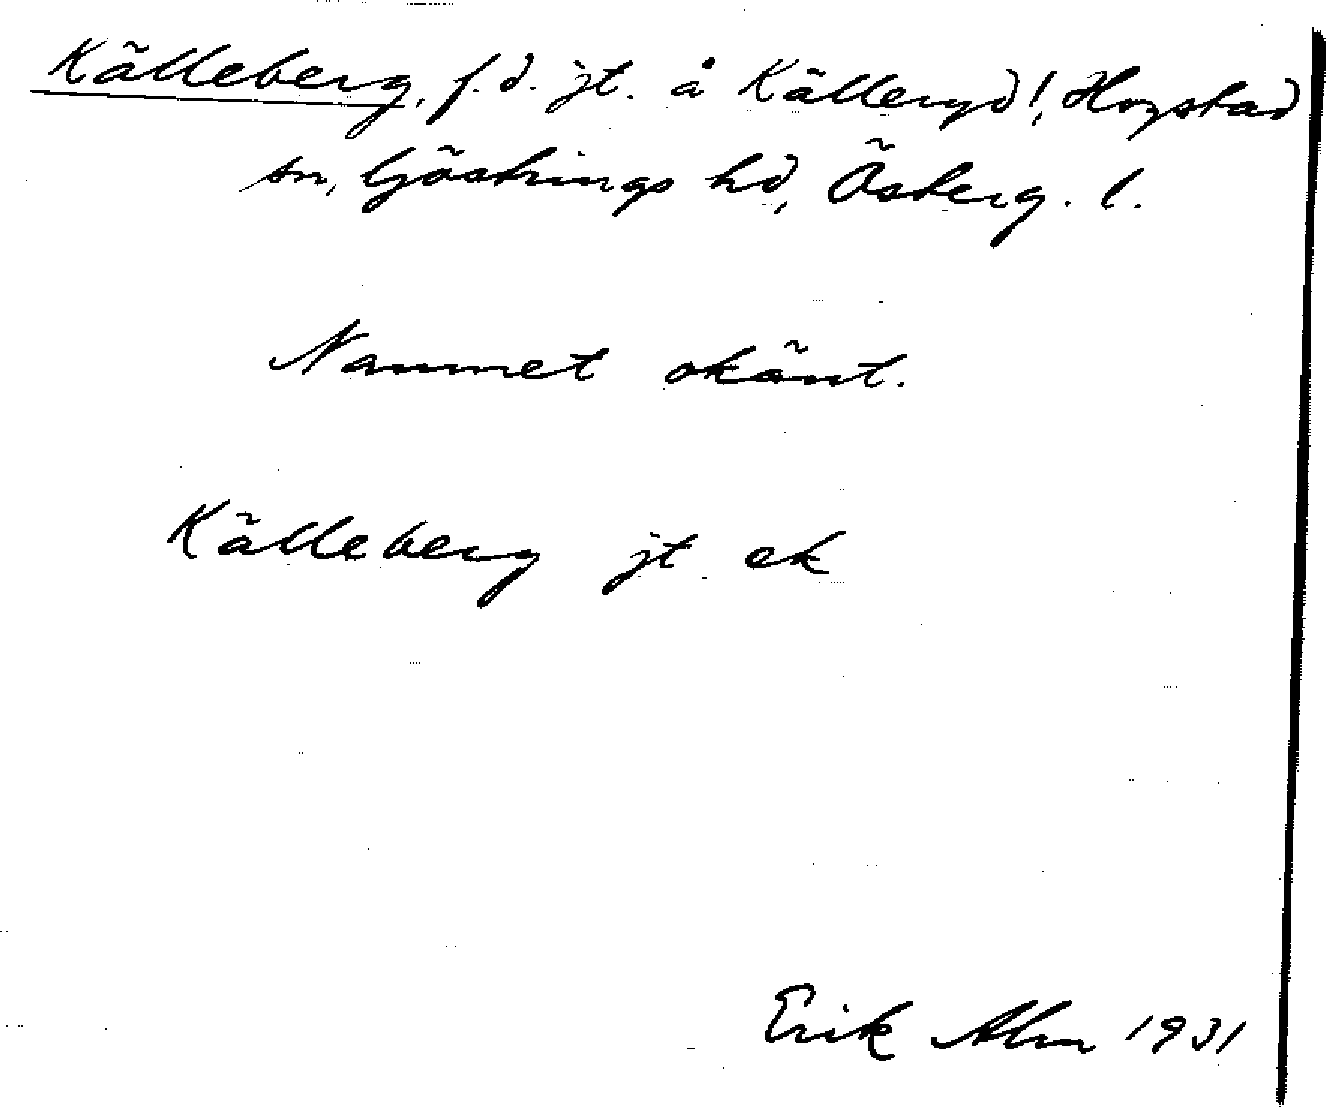 Källeberg, f.d. jt. å Källeryd!, Hogstad
sn, Göstrings hd, Österg. l.
Namnet okänt.
Källeberg jt ek
Erik Alm 1931